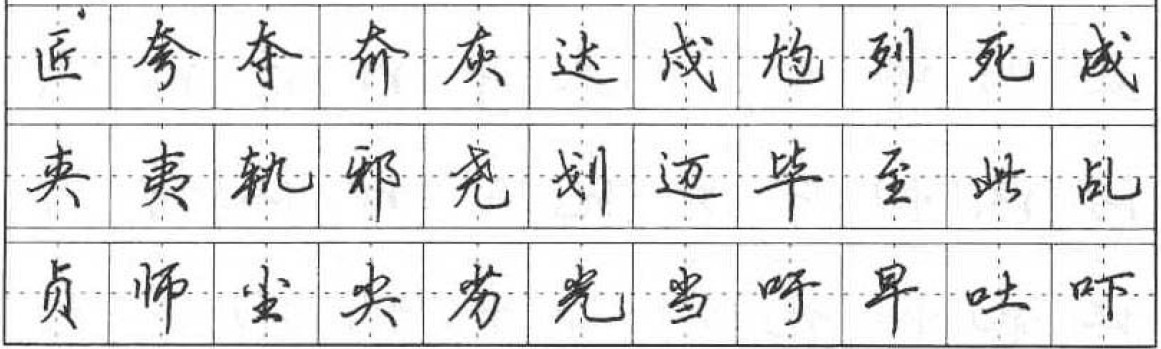 匠夸夺夼灰达戍尥列死成
夹夷轨邪尧划迈毕至此乩
贞师尘尖劣光当吁早吐吓